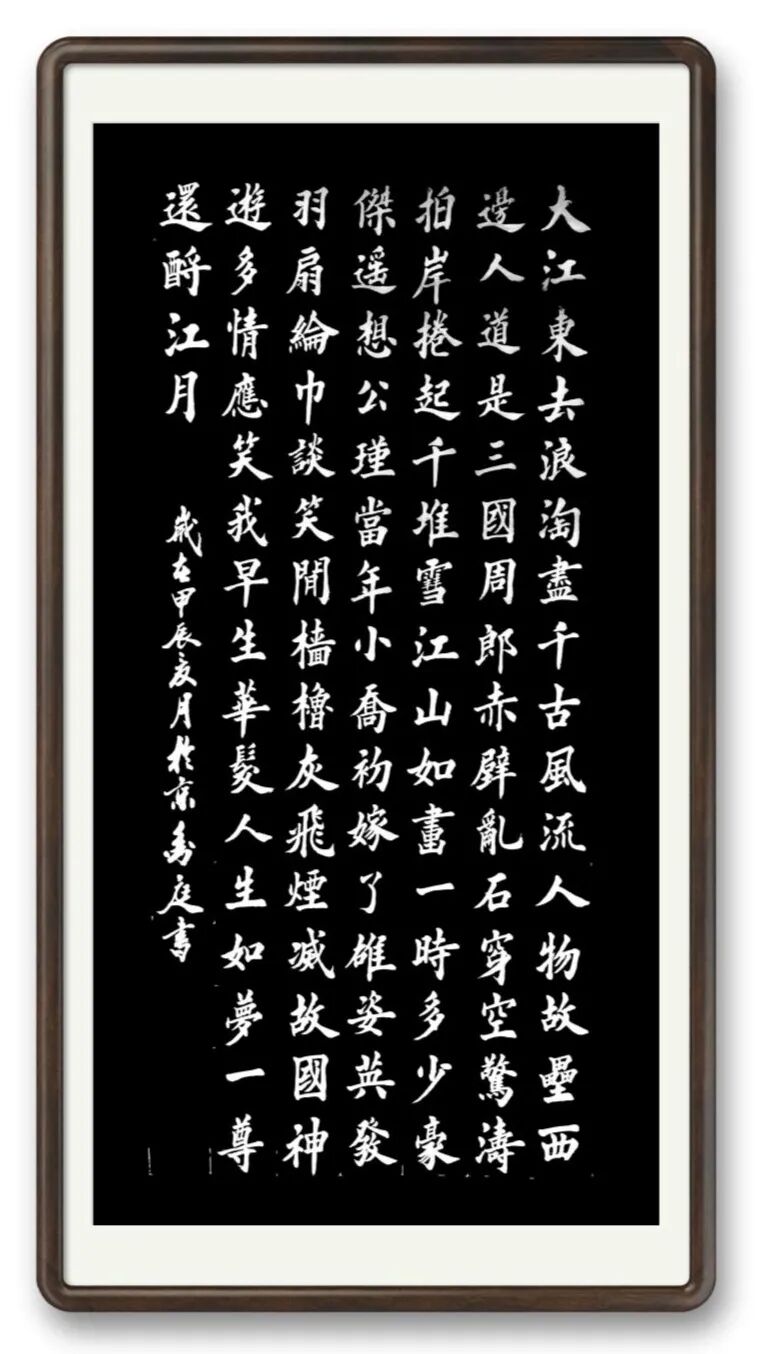 大江東去浪淘盡千古風流人物故壘西
邊人道是三國周郎赤壁亂石穿空驚濤
拍岸捲起千堆雪江山如畫一時多少豪
傑遥想公瑾當年小喬初嫁了雄姿英發
羽扇綸巾談笑閒檣櫓灰飛煙滅故國神
遊多情應笑我早生華髮人生如夢一尊
還酹江月
歲在甲辰夏月於京庭書